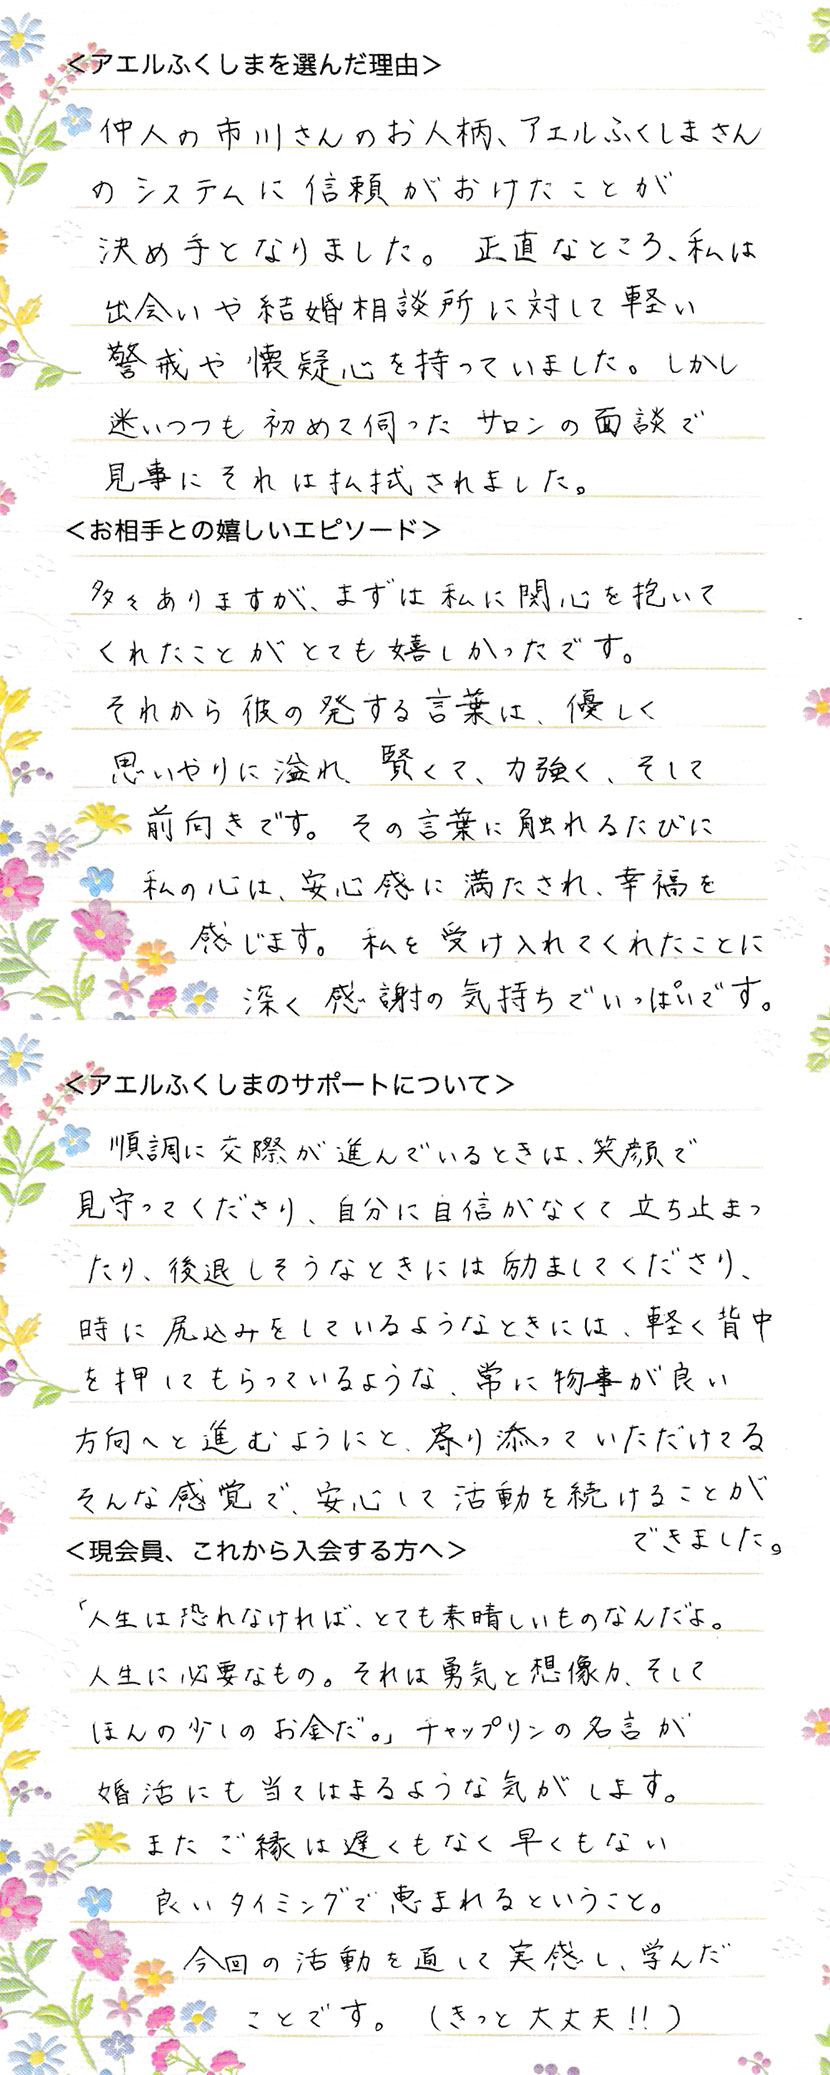 ＜アエルふくしまを選んだ理由＞
仲人の市川さんのお人柄、アエルふくしまさん
のシステムに信頼がおけたことが
決め手となりました。正直なところ、私は
出会いや結婚相談所に対して軽い
警戒や懐疑心を持っていました。しかし
迷いつつも初めて伺ったサロンの面談で
見事にそれは払拭されました。
＜お相手との嬉しいエピソード＞
多々ありますが、まずは私に関心を抱いて
くれたことがとても嬉しかったです。
それから彼の発する言葉は、優しく
思いやりに溢れ、賢くて、力強く、そして
前向きです。その言葉に触れるたびに
私の心は、安心感に満たされ、幸福を
感じます。私を受け入れてくれたことに
深く感謝の気持ちでいっぱいです。
＜アエルふくしまのサポートについて＞
順調に交際が進んでいるときは、笑顔で
見守ってくださり、自分に自信がなくて立ち止まっ
たり、後退しそうなときには励ましてくださり、
時に尻込みをしているようなときには、軽く背中
を押してもらっているような、常に物事が良い
方向へと進むようにと、寄り添っていただけてる
そんな感覚で、安心して活動を続けることが
できました。
＜現会員、これから入会する方へ＞
「人生は恐れなければ、とても素晴しいものなんだよ。
人生に必要なもの。それは勇気と想像力、そして
ほんの少しのお金だ。」チャップリンの名言が
婚活にも当てはまるような気がします。
またご縁は遅くもなく早くもない
良いタイミングで恵まれるということ。
今回の活動を通して実感し、学んだ
ことです。（きっと大丈夫!!）